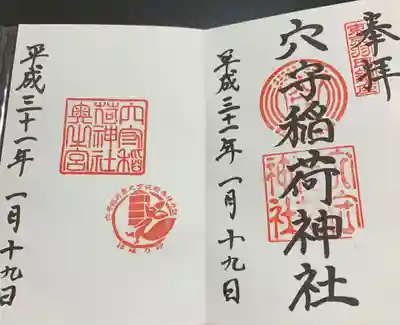 奉拝
穴守稲荷神社
平成三十一年 一月十九日
穴守稲
荷神社
奥之宮
平成三十一年 一月十九日